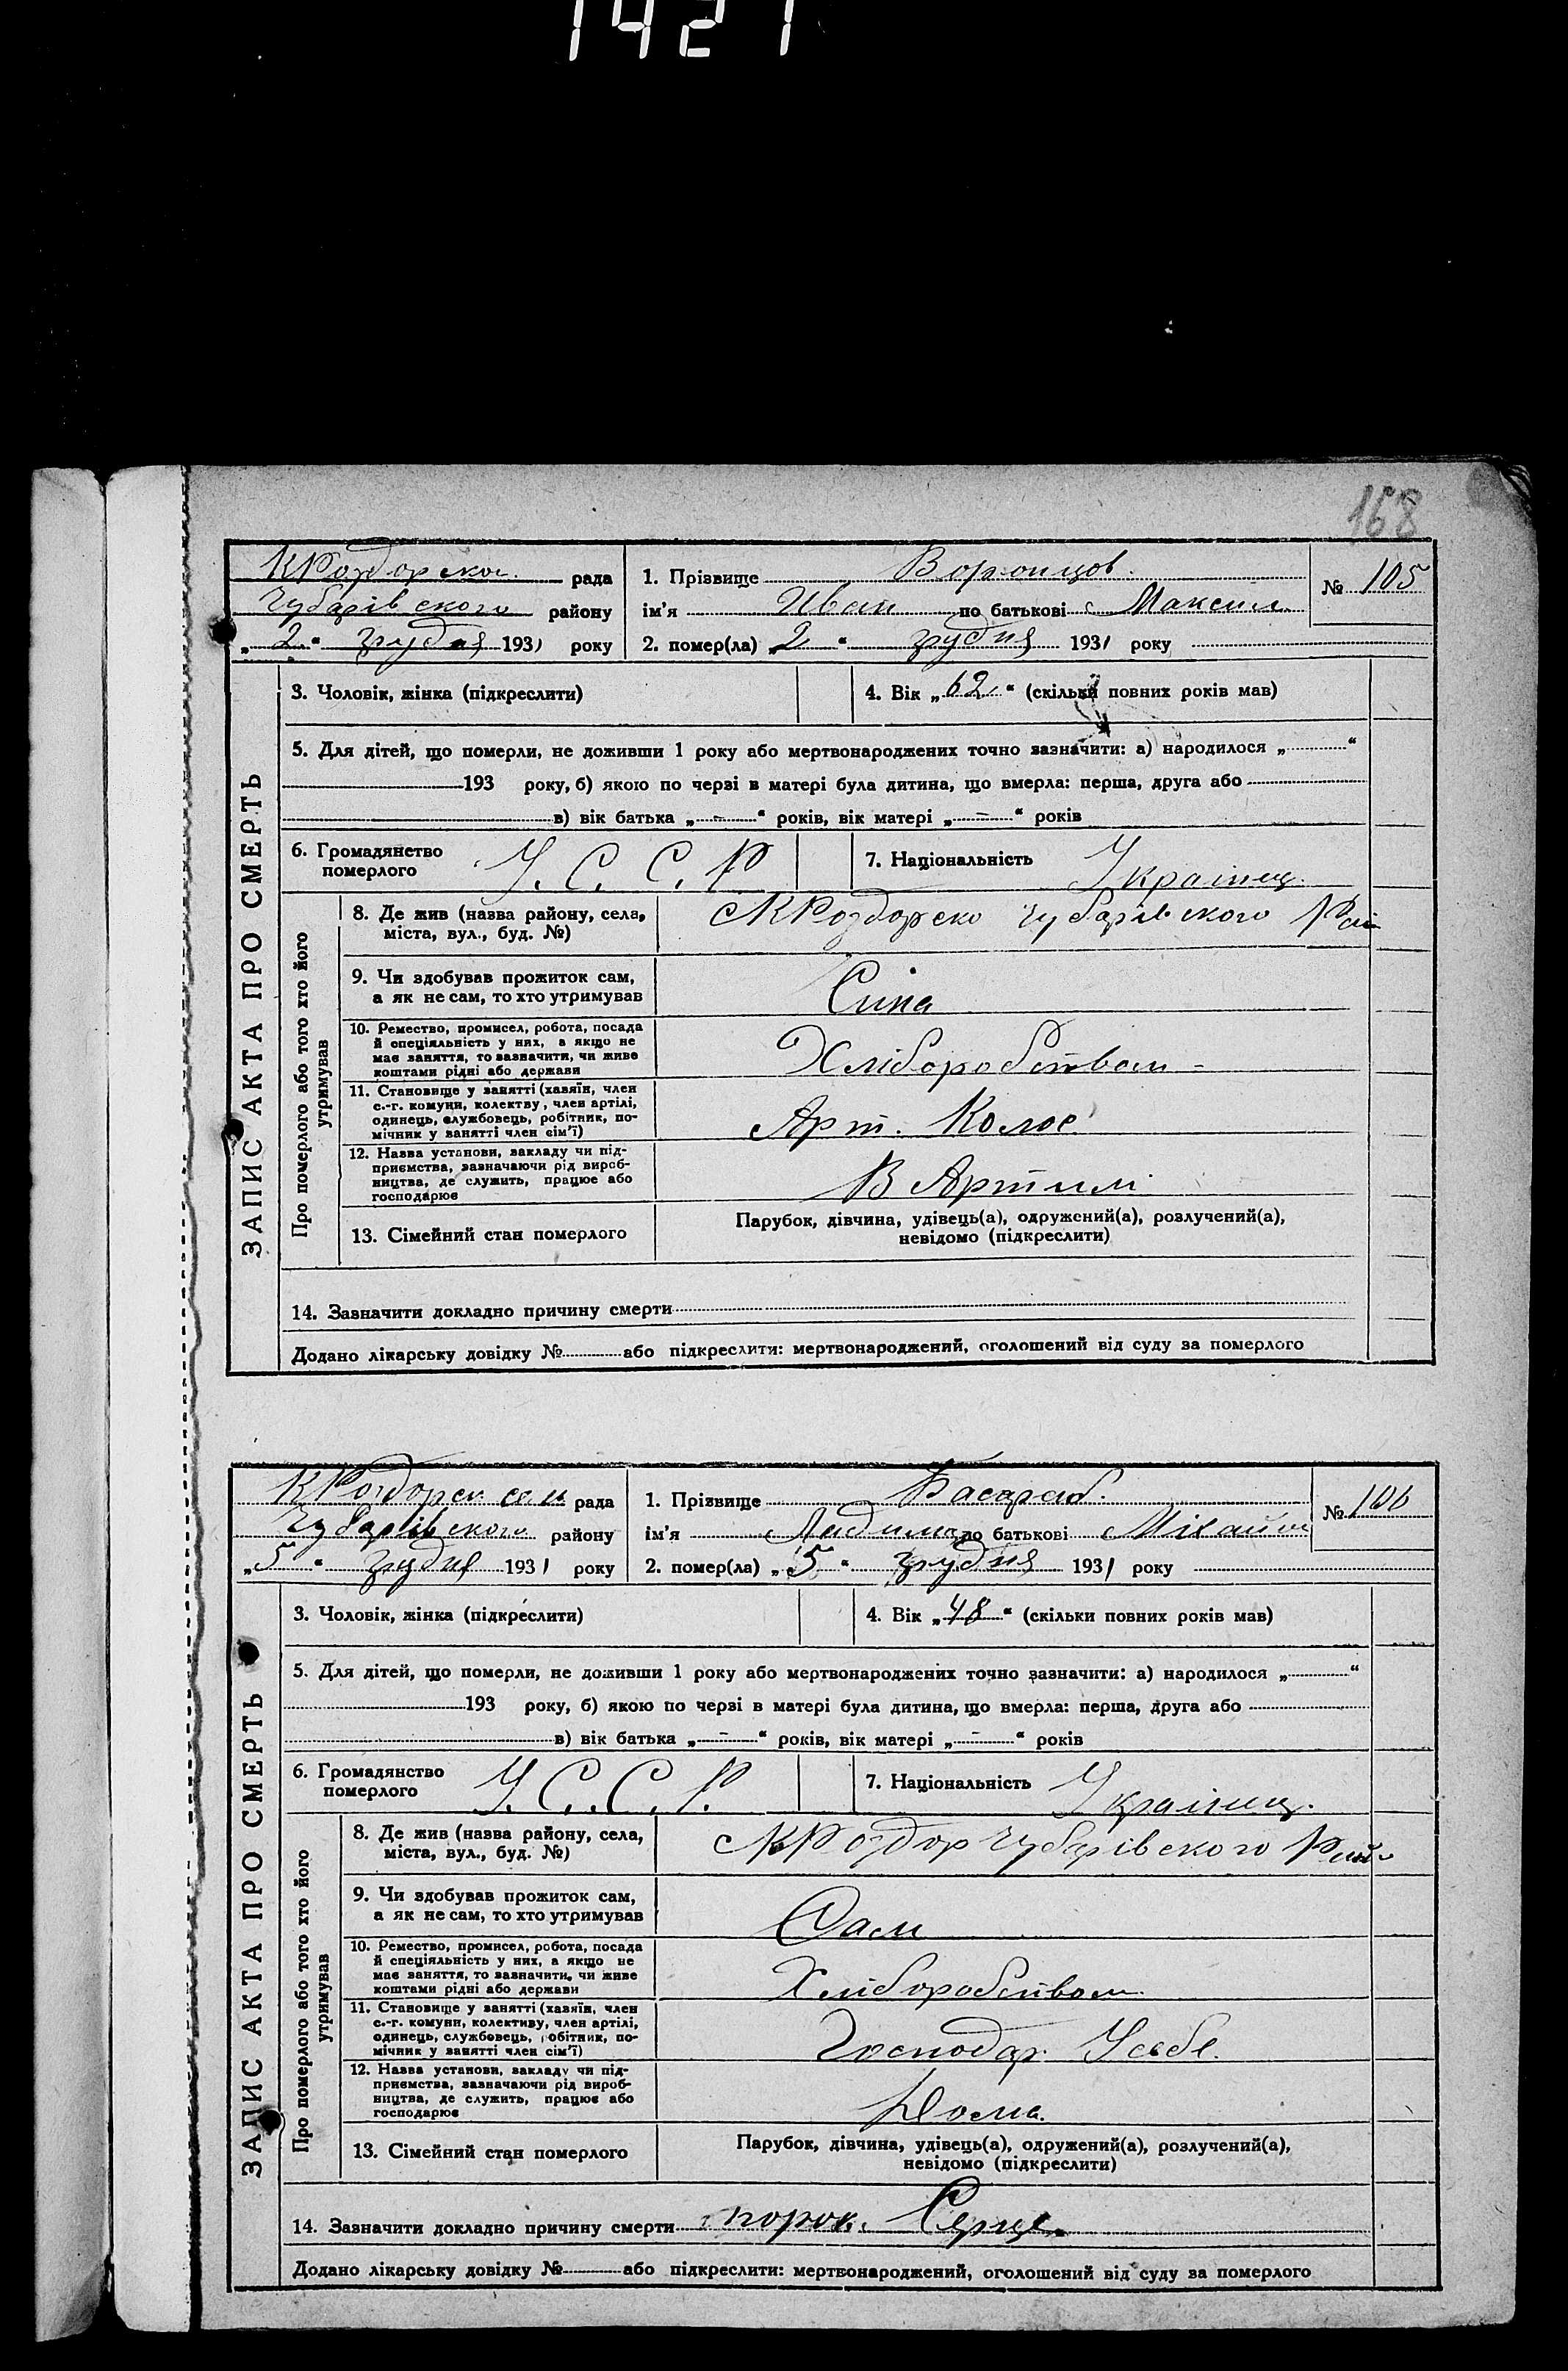 1421
168
КРоздорској рада
Чубарівского району
„2“ грудня 1931 року
1. Прізвище Воронцов.
ім'я Иван по батькові Максим
№ 105
2. помер(ла) „2“ грудня 1931 року
ЗАПИС АКТА ПРО СМЕРТЬ
3. Чоловік, жінка (підкреслити)
4. Вік „62“ (скільки повних років мав)
5. Для дітей, що померли, не доживши 1 року або мертвонароджених точно зазначити: а) народилося „ “
193 року, б) якою по черзі в матері була дитина, що вмерла: перша, друга або
в) вік батька „-“ років, вік матері „-“ років
6. Громадянство
померлого
У. С. С. Р
7. Національність Українец.
Про померлого або того хто його
утримував
8. Де жив (назва району, села,
міста, вул., буд. №)
с КРоздорско Чубарівского Рай
9. Чи здобував прожиток сам,
а як не сам, то хто утримував
Сина
10. Ремество, промисел, робота, посада
й спеціяльність у них, а якщо не
має заняття, то зазначити, чи живе
коштами рідні або держави
Хліборобством
11. Становище у занятті (хазяїн, член
с.-г. комуни, колектву, член артілі,
одинець, службовець, робітник, по-
мічник у занятті член сім'ї)
Арт. Колос
12. Назва установи, закладу чи під-
приємства, зазначаючи рід вироб-
ництва, де служить, працює або
господарює
В Артилі
13. Сімейний стан померлого
Парубок, дівчина, удівець(а), одружений(а), розлучений(а),
невідомо (підкреслити)
14. Зазначити докладно причину смерти
Додано лікарську довідку № або підкреслити: мертвонароджений, оголошений від суду за померлого
КРоздорск сель рада
Чубарівского району
„5“ грудня 1931 року
1. Прізвище Басараб.
ім'я по батькові Міхайл
№ 106
2. помер(ла) „5“ грудня 1931 року
ЗАПИС АКТА ПРО СМЕРТЬ
3. Чоловік, жінка (підкреслити)
4. Вік „48“ (скільки повних років мав)
5. Для дітей, що померли, не доживши 1 року або мертвонароджених точно зазначити: а) народилося „ “
193 року, б) якою по черзі в матері була дитина, що вмерла: перша, друга або
в) вік батька „-“ років, вік матері „-“ років
6. Громадянство
померлого
У. С. С. Р.
7. Національність Українец.
Про померлого або того хто його
утримував
8. Де жив (назва району, села,
міста, вул., буд. №)
с КРоздор Чубарівского Рай
9. Чи здобував прожиток сам,
а як не сам, то хто утримував
Сам
10. Ремество, промисел, робота, посада
й спеціяльність у них, а якщо не
має заняття, то зазначити, чи живе
коштами рідні або держави
Хліборобством
11. Становище у занятті (хазяїн, член
с.-г. комуни, колективу, член артілі,
одинець, службовець, робітник, по-
мічник у занятті член сім'ї)
Господар Усебе.
12. Назва установи, закладу чи під-
приємства, зазначаючи рід вироб-
ництва, де служить, працює або
господарює
Дома.
13. Сімейний стан померлого
Парубок, дівчина, удівець(а), одружений(а), розлучений(а),
невідомо (підкреслити)
14. Зазначити докладно причину смерти порок. Серце.
Додано лікарську довідку № або підкреслити: мертвонароджений, оголошений від суду за померлого